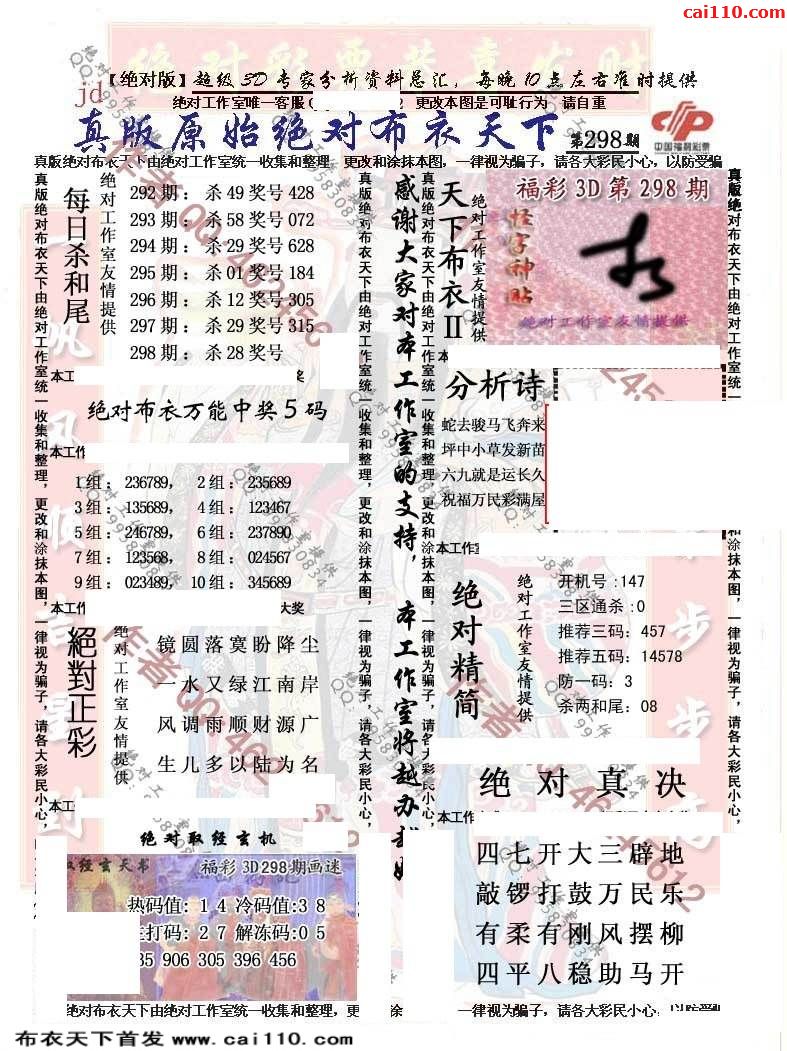 cai110.com
【绝对版】超级3D专家分析资料总汇，每晚10点左右准时提供
jd
绝对工作室唯一客服
更改本图是可耻行为 请自重
真版原始绝对布衣天下 第298期
中国福利彩票
真版绝对布衣天下由绝对工作室统一收集和整理，更改和涂抹本图，一律视为骗子，请各大彩民小心，以防受骗
每日杀和尾
绝对工作室友情提供
292期：杀49奖号428
293期：杀58奖号072
294期：杀29奖号628
295期：杀01奖号184
296期：杀12奖号305
297期：杀29奖号315
298期：杀28奖号
本工
绝对布衣万能中奖5码
本工作
1组：236789，2组：235689
3组：135689，4组：123467
5组：246789，6组：237890
7组：123568，8组：024567
9组：023489，10组：345689
本工作
大奖
絕對正彩
绝对工作室友情提供
镜圆落寞盼降尘
一水又绿江南岸
风调雨顺财源广
生儿多以陆为名
本工
绝对取经玄机
取经玄天书
福彩3D298期画迷
热码值：14冷码值:38
主打码：27解冻码:05
35 906 305 396 456
真版绝对布衣天下由绝对工作室统一收集和整理，更改和涂抹本图，一律视为骗子，请各大彩民小心，
感谢大家对本工作室的支持，本工作室将越办越
天下布衣II
绝对工作室友情提供
福彩3D第298期
怪字神贴
绝对工作室友情提供
分析诗
蛇去骏马飞奔来
坪中小草发新苗
六九就是运长久
祝福万民彩满屋
本工作室
绝对精简
绝对工作室友情提供
开机号:147
三区通杀:0
推荐三码：457
推荐五码：14578
防一码：3
杀两和尾：08
绝对真决
本工作
四七开大三辟地
敲锣打鼓万民乐
有柔有刚风摆柳
四平八稳助马开
绝对布衣天下由绝对工作室统一收集和整理，更
涂
一律视为骗子，请各大彩民小心，以防受骗
布衣天下首发 www.cai110.com